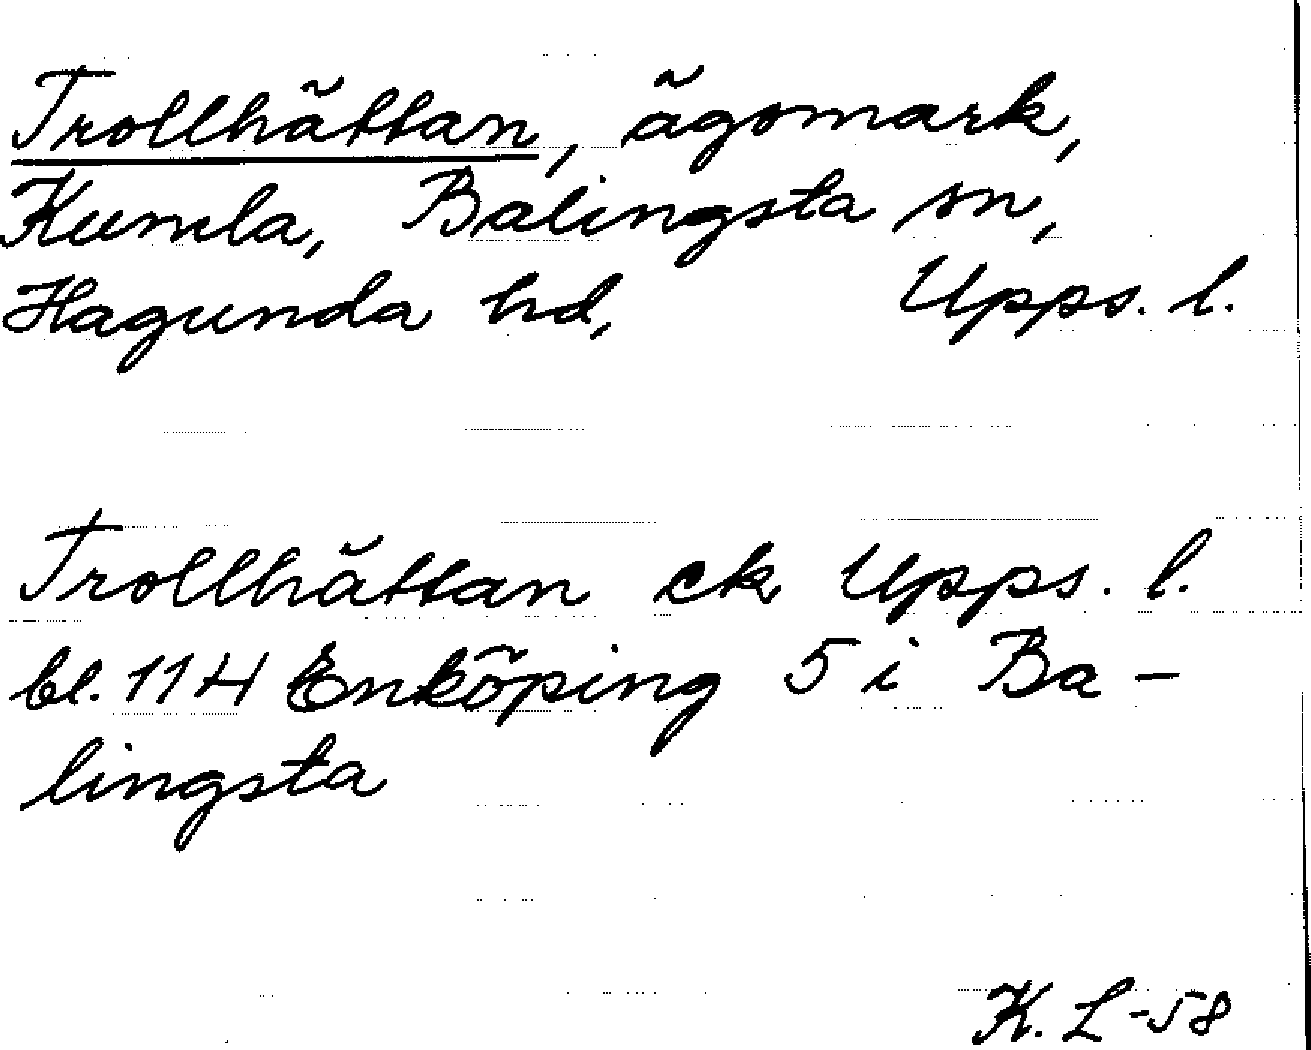 Trollhättan, ägomark,
Kumla, Balingsta sn,
Hagunda hd, Upps. l.
Trollhättan ek Upps. l.
bl. 11H Enköping 5 i Ba-
lingsta
K. L-58